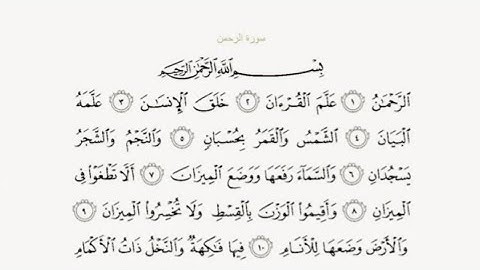 سورة الرحمن
بِسْمِ اللَّهِ الرَّحْمَٰنِ الرَّحِيمِ
الرَّحْمَٰنُ ١ عَلَّمَ الْقُرْءَانَ ٢ خَلَقَ الْإِنسَٰنَ ٣ عَلَّمَهُ
الْبَيَانَ ٤ الشَّمْسُ وَالْقَمَرُ بِحُسْبَانٍ ٥ وَالنَّجْمُ وَالشَّجَرُ
يَسْجُدَانِ ٦ وَالسَّمَآءَ رَفَعَهَا وَوَضَعَ الْمِيزَانَ ٧ أَلَّا تَطْغَوْا فِى
الْمِيزَانِ ٨ وَأَقِيمُوا الْوَزْنَ بِالْقِسْطِ وَلَا تُخْسِرُوا الْمِيزَانَ ٩
وَالْأَرْضَ وَضَعَهَا لِلْأَنَامِ ١٠ فِيهَا فَٰكِهَةٌ وَالنَّخْلُ ذَاتُ الْأَكْمَامِ